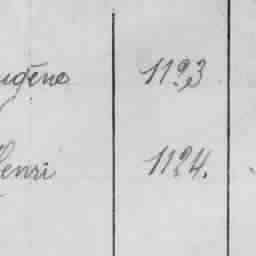 ugène 1193
Henri 1194.